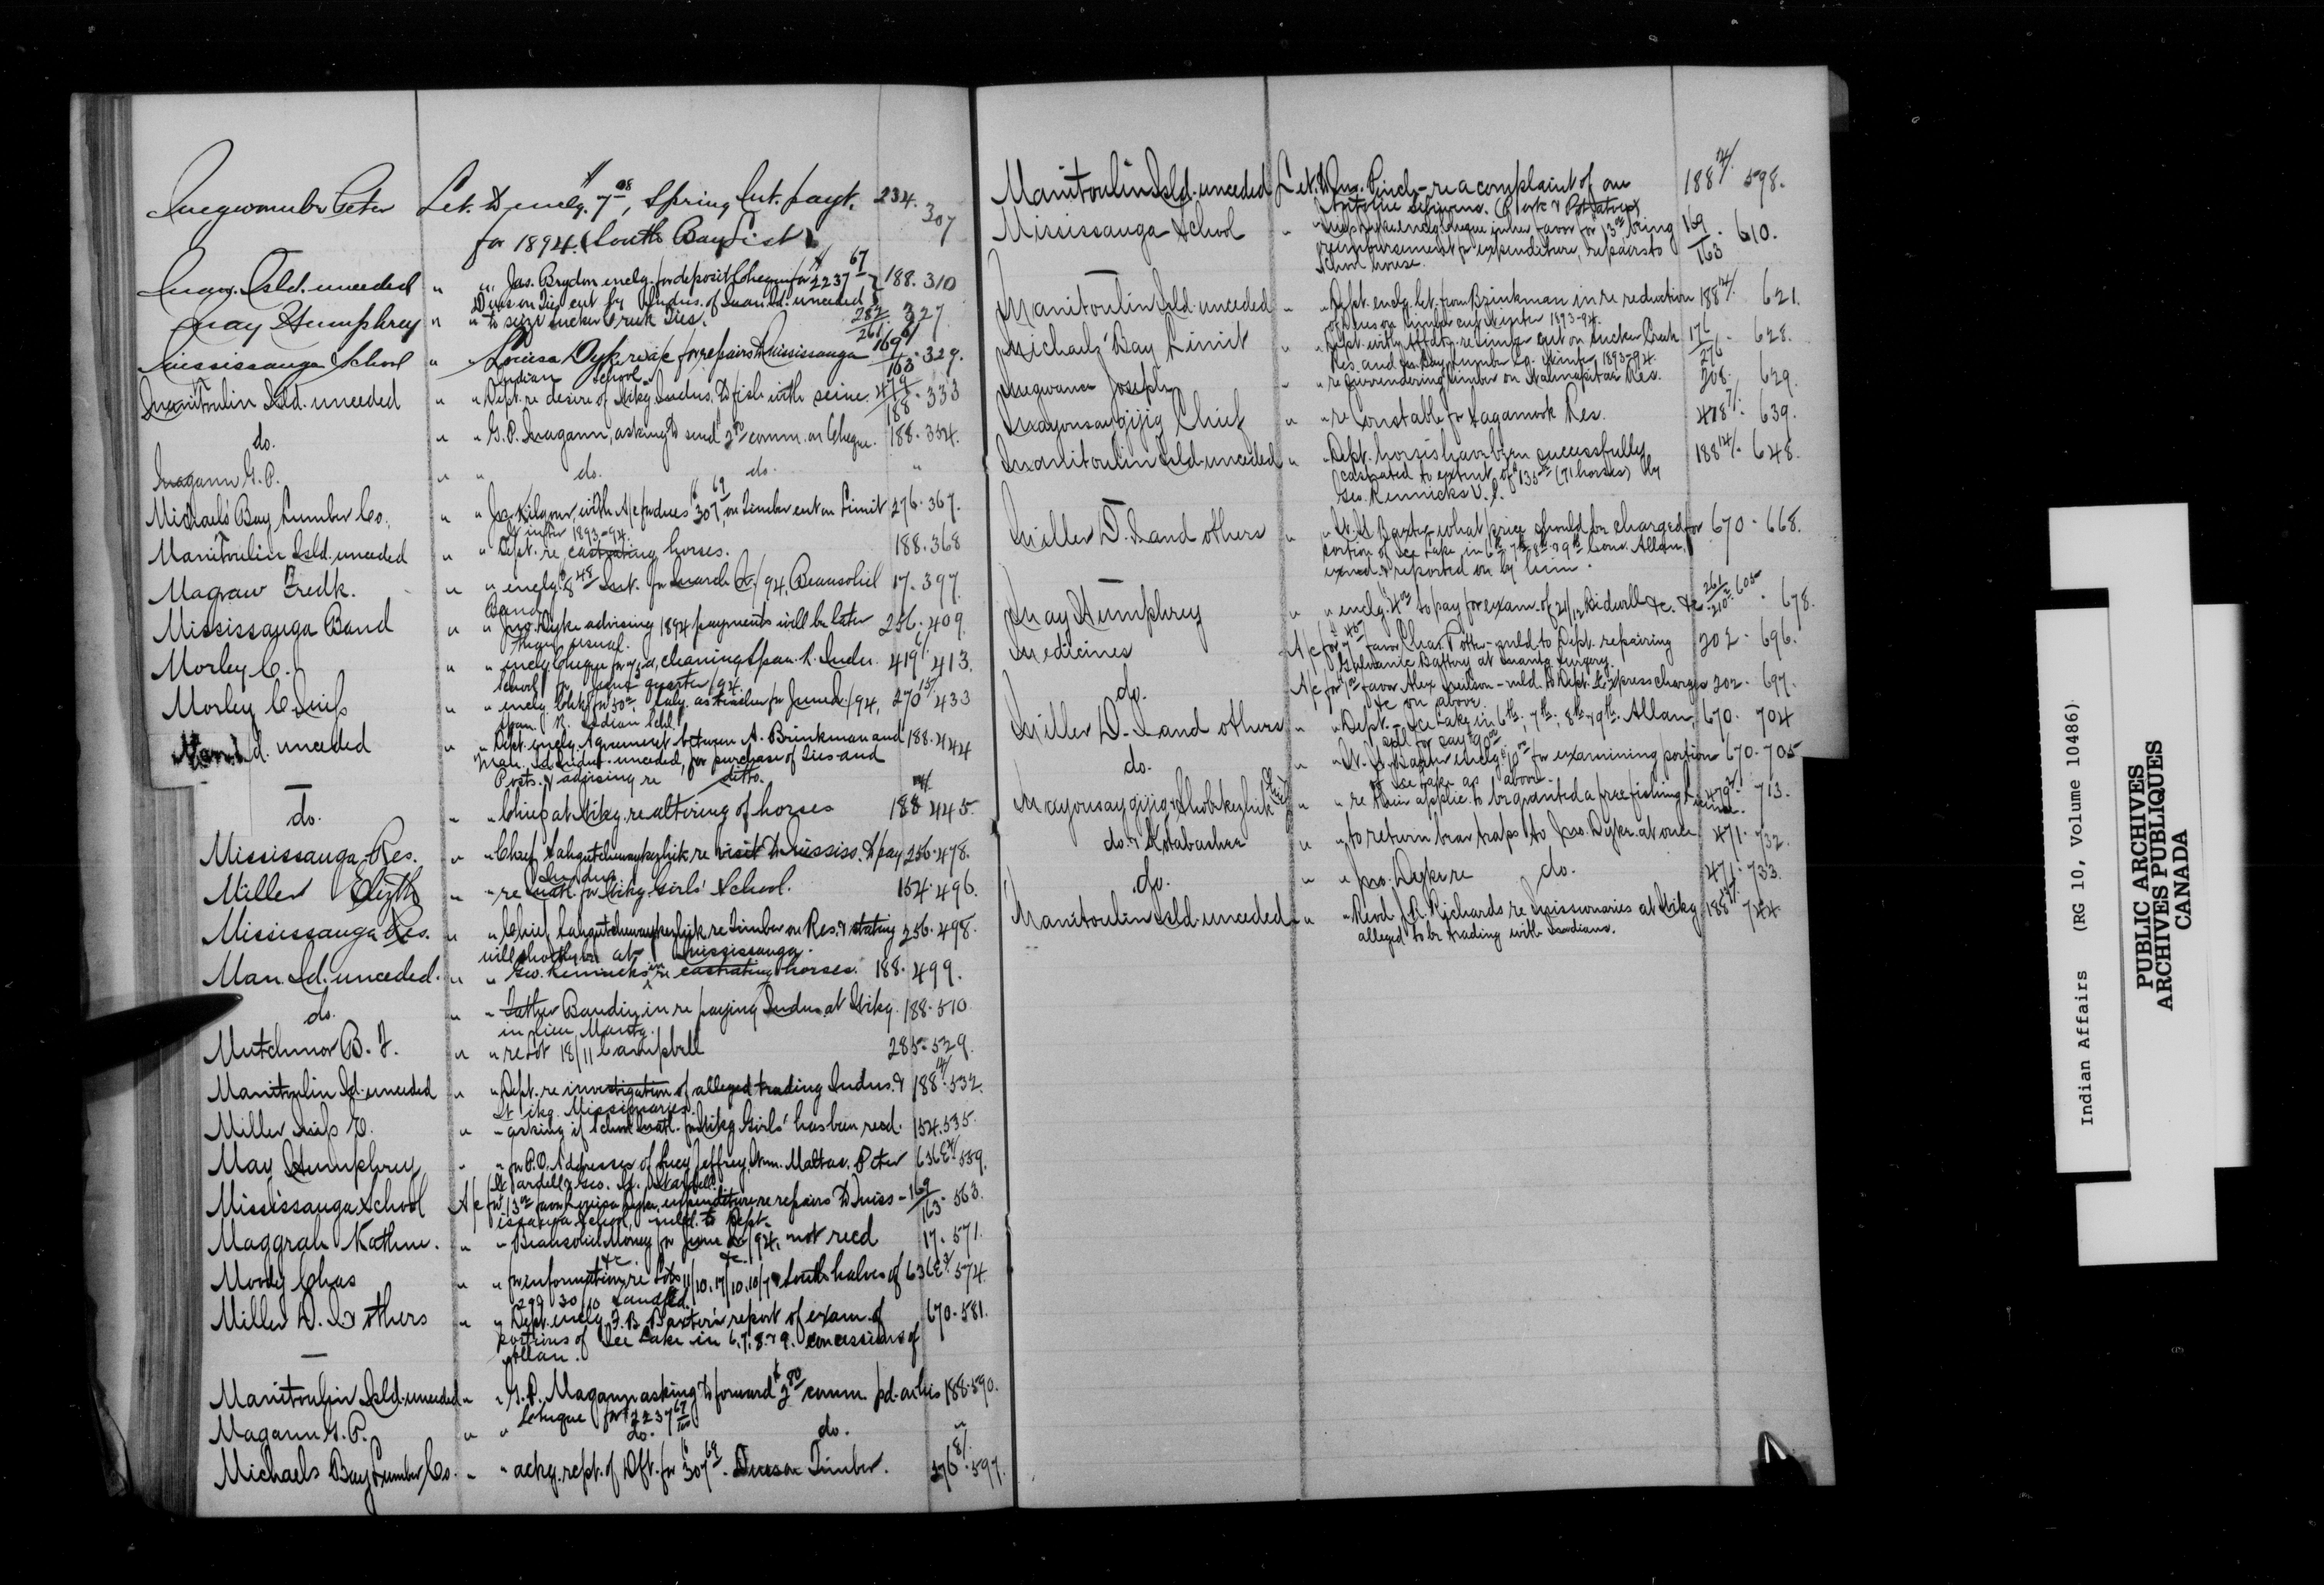 Let. to enclg. $7.08, Spring Int. payt. 234. 307
for 1894. (South Bay List)
Man. Isld. unceded " " Jas. Brydon enclg. for deposit Cheque for $2237.67 188. 310
Dues on Ties cut by Indns. of Man. Id. unceded
May Humphrey " " to seize Sucker Creek Ties. 282/261 327
Mississauga School " Louisa Dyke re a/c for repairs to Mississauga 169/163. 329.
Indian School
Manitoulin Isld. unceded " " Dept. re desire of Wiky. Indns. to fish with seine. 479/188. 333
do. " " G. P. Magann, asking to send $2.80 comm. on Cheque. 188. 334.
Magann G. P. " " do. do. "
Michael's Bay Lumber Co. " " Kilgour, with A/c for dues $307.69, on Timber cut on Limit 276. 367.
Winter 1893-94.
Manitoulin Isld. unceded " " Dept. re castrating horses. 188. 368
Magraw Fredk. " " enclg. $8.48 Int. for March Qr/94, Beausoliel 17. 397
Band
Mississauga Band " " Jno. Dyke advising 1894 payments will be later 256. 409.
than usual.
Morley C. " " enclg. Cheque for cleaning Span. R. Indn. 419 413.
School for June quarter/94.
Morley C Miss " " enclg. Chk. for 50.00, Salary as teacher for June Qr/94, 270 433
Span. R. Indian Schl.
Man. Id. unceded " " Dept. enclg. Agreement between A. Brinkman and 188. 444
Man. Id. Indns. unceded, for purchase of Ties and
Posts. & advising re ditto.
do. " " Chief at Wiky. re altering of horses 188 445.
Mississauga Res. " " Chief re visit to Mississ. to pay 256. 478.
Indns.
Miller Elizth " " re Matl. for Wiky. Girls' School. 154. 496.
Mississauga Res. " " Chief re Timber on Res. & stating 256. 498.
will shortly be at Mississauga.
Man. Id. unceded. " " Geo. Rennicks in re castrating horses. 188. 499.
do. " " Father Baudin, in re paying Indns. at Wiky. 188. 510
in lieu Manty.
Mutchmor B. F. " " re Lot 18/11 Campbell 285. 529.
Manitoulin Id. unceded " " Dept. re investigation of alleged trading Indns. & 188 14/. 532.
Wiky. Missionaries.
Miller Miss E. " " asking if School Matl. for Wiky Girls' has been recd. 154. 535.
May Humphrey " " for P.O. Addresses of Lucy Jeffrey, Wm. Maltas, Peter 636 559.
Wardell & Geo. Wardell.
Mississauga School A/c for $13.00 favor Louisa Dyke, expenditure re repairs to Miss- 169/163. 563.
issauga School, mld. to Dept.
Maggrah Kathne. " " Beausoliel Money for June Qr/94, not recd 17. 571.
&c. &c.
Moody Chas " " for information re Lots 11/10, 17/10, 10/7 & South halves of 636 574.
29 & 30/10 Sandfld.
Miller D. I. & others " " Dept. enclg. F. B. Baxter's report of exam. of 670. 581.
portions of Ice Lake in 6. 7. 8. & 9. concessions of
Allan.
Manitoulin Isld. unceded " " G. P. Magann asking to forward $2.80 comm. pd. on his 188. 590.
Cheque for $2237 67/100
Magann G. P. " " do. do. "
Michaels Bay Lumber Co. " " ackg. rept. of Dft. for $307.69. Dues on Timber. 276 8/. 597.
Manitoulin Isld. unceded Let. to re a complaint of one 188 14/. 598.
Antoine
Mississauga School " " Louisa Dyke enclg. cheque in her favor for $13.00 being 169/163. 610.
reimbursement for expenditure, repairs to
School house.
Manitoulin Isld. unceded " " Dept. enclg. let. from Brinkman in re reduction 188 14/. 621.
of dues on timber cut Winter 1893-94.
Michaels' Bay Limit " " Dept. with re timber cut on Sucker Creek 176/276. 628.
Res. and Ms. Bay Lumber Co. Winter 1893-94.
Megwance Joseph " " re surrendering timber on Wahnapitae Res. 208. 629.
Mayonsaygijig Chief " " re Constable for Sagamook Res. 418 7/. 639.
Manitoulin Isld. unceded " " Dept. horses have been successfully 188 14/. 648.
castrated to extent of $135.00 (71 horses) by
Geo. Rennicks V. S.
Miller D. I. and others " " Baxter, what price should be charged for 670. 668.
portion of Ice Lake, in 6th, 7th, 8th & 9th Cons. Allan,
exmd. & reported on by him.
May Humphrey " " enclg. $4.00 to pay for exam. of 21/12 Bidwell &c. &c. 261/210. 605. 678.
Medicines A/c for favor Chas. Potter - mld. to Dept. repairing 202. 696.
Galvanic Battery at Manito. Surgery.
do. A/c for favor Alex Neilson - mld. to Dept. Express charges 202. 697.
&c on above.
Miller D. I. and others " " Dept. - Ice Lake in 6th, 7th, 8th & 9th. Allan, 670. 704
sell for say $90.00
do. " " Baxter enclg. $10.00 for examining portion 670. 705
of Ice Lake as above.
Mayonsaygijig & Shobkezhik Chiefs " " re their applic. to be granted a free fishing license. 479 713.
do. & Kotabachee " " to return bear traps to Jno. Dyke at once. 471. 732.
do. " " Jno. Dyke re do. 471. 733.
Manitoulin Isld. unceded " " Revd. J. R. Richards re Missionaries at Wiky 188 14/. 744
alleged to be trading with Indians.
Indian Affairs (RG 10, Volume 10486)
PUBLIC ARCHIVES
ARCHIVES PUBLIQUES
CANADA